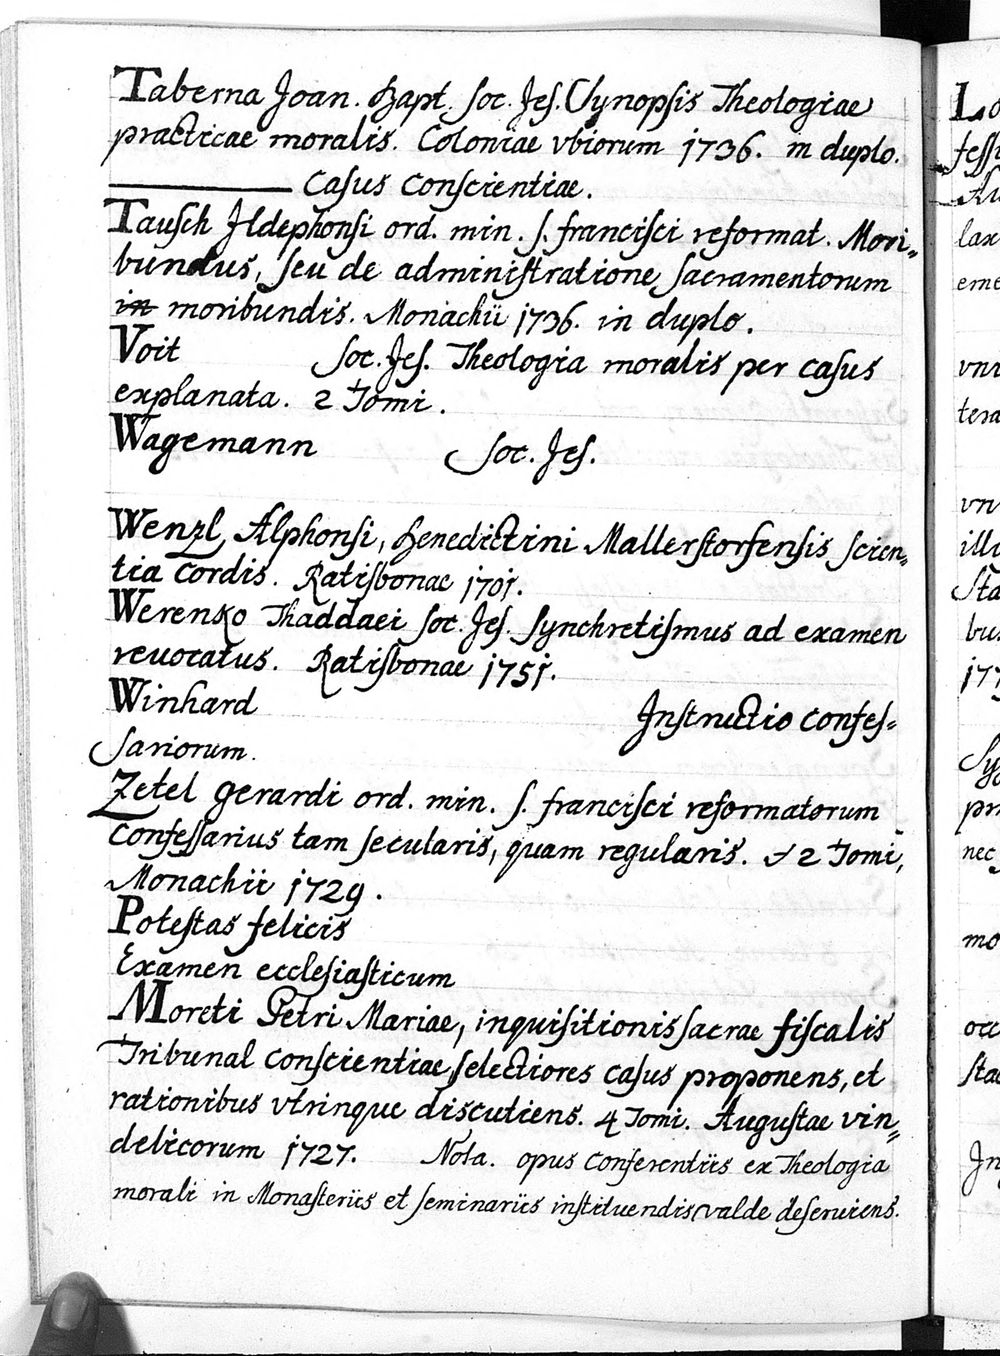 Taberna Joan. Bapt. Soc. Jes. Synopsis Theologiae
practicae moralis. Coloniae vbiorum 1736. in duplo.
———— Casus conscientiae.
Tausch Ildephonsi ord. min. S. francisci reformat. Mori=
bundus, seu de administratione sacramentorum
in moribundis. Monachii 1736. in duplo.
Voit Soc. Jes. Theologia moralis per casus
explanata. 2 Tomi.
Wagemann Soc. Jes.
Wenzl, Alphonsi, Benedictini Mallerstorfensis scien=
tia cordis. Ratisbonae 1701.
Werenko Thaddaei Soc. Jes. Synchretismus ad examen
reuocatus. Ratisbonae 1751.
Winhard Instructio confes=
sariorum.
Zetel gerardi ord. min. S. francisci reformatorum
Confessarius tam secularis, quam regularis. 2 Tomi,
Monachii 1729.
Potestas felicis
Examen ecclesiasticum
Moreti Petri Mariae, inquisitionis sacrae fiscalis
Tribunal conscientiae, selectiores casus proponens, et
rationibus vtrinque discutiens. 4 Tomi. Augustae vin=
delicorum 1727. Nota. opus conferentiis ex Theologia
morali in Monasteriis et seminariis instituendis valde deseruiens.